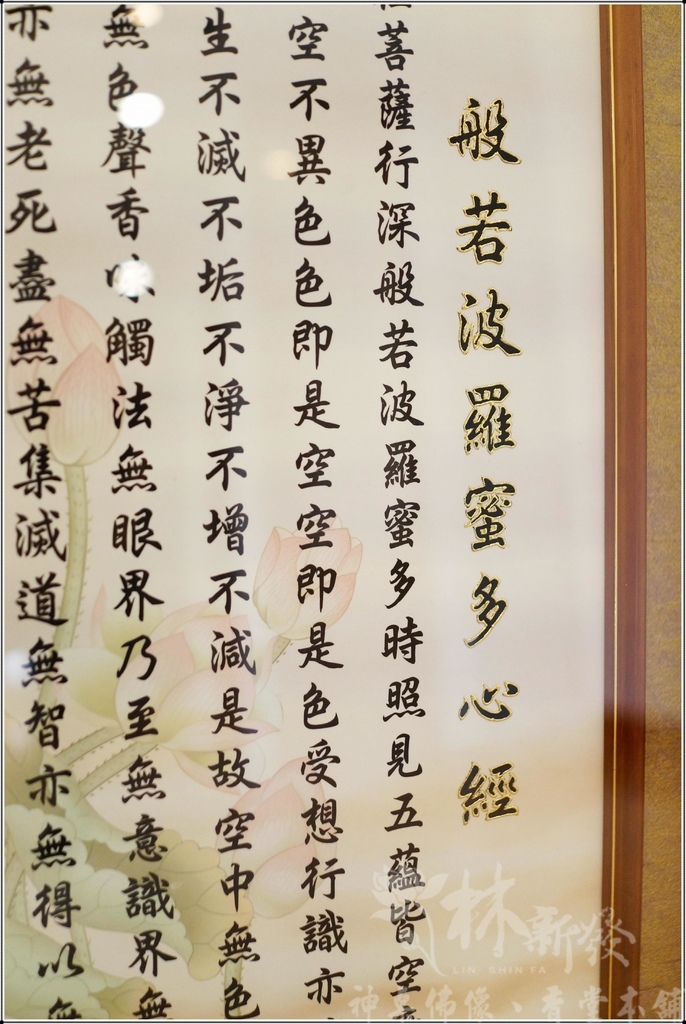 般若波羅蜜多心經
菩薩行深般若波羅蜜多時照見五蘊皆空
空不異色色即是空空即是色受想行識亦
生不滅不垢不淨不增不減是故空中無色
無色聲香味觸法無眼界乃至無意識界無
亦無老死盡無苦集滅道無智亦無得以無
林新發
LIN SHIN FA
神桌佛像、香堂本舖